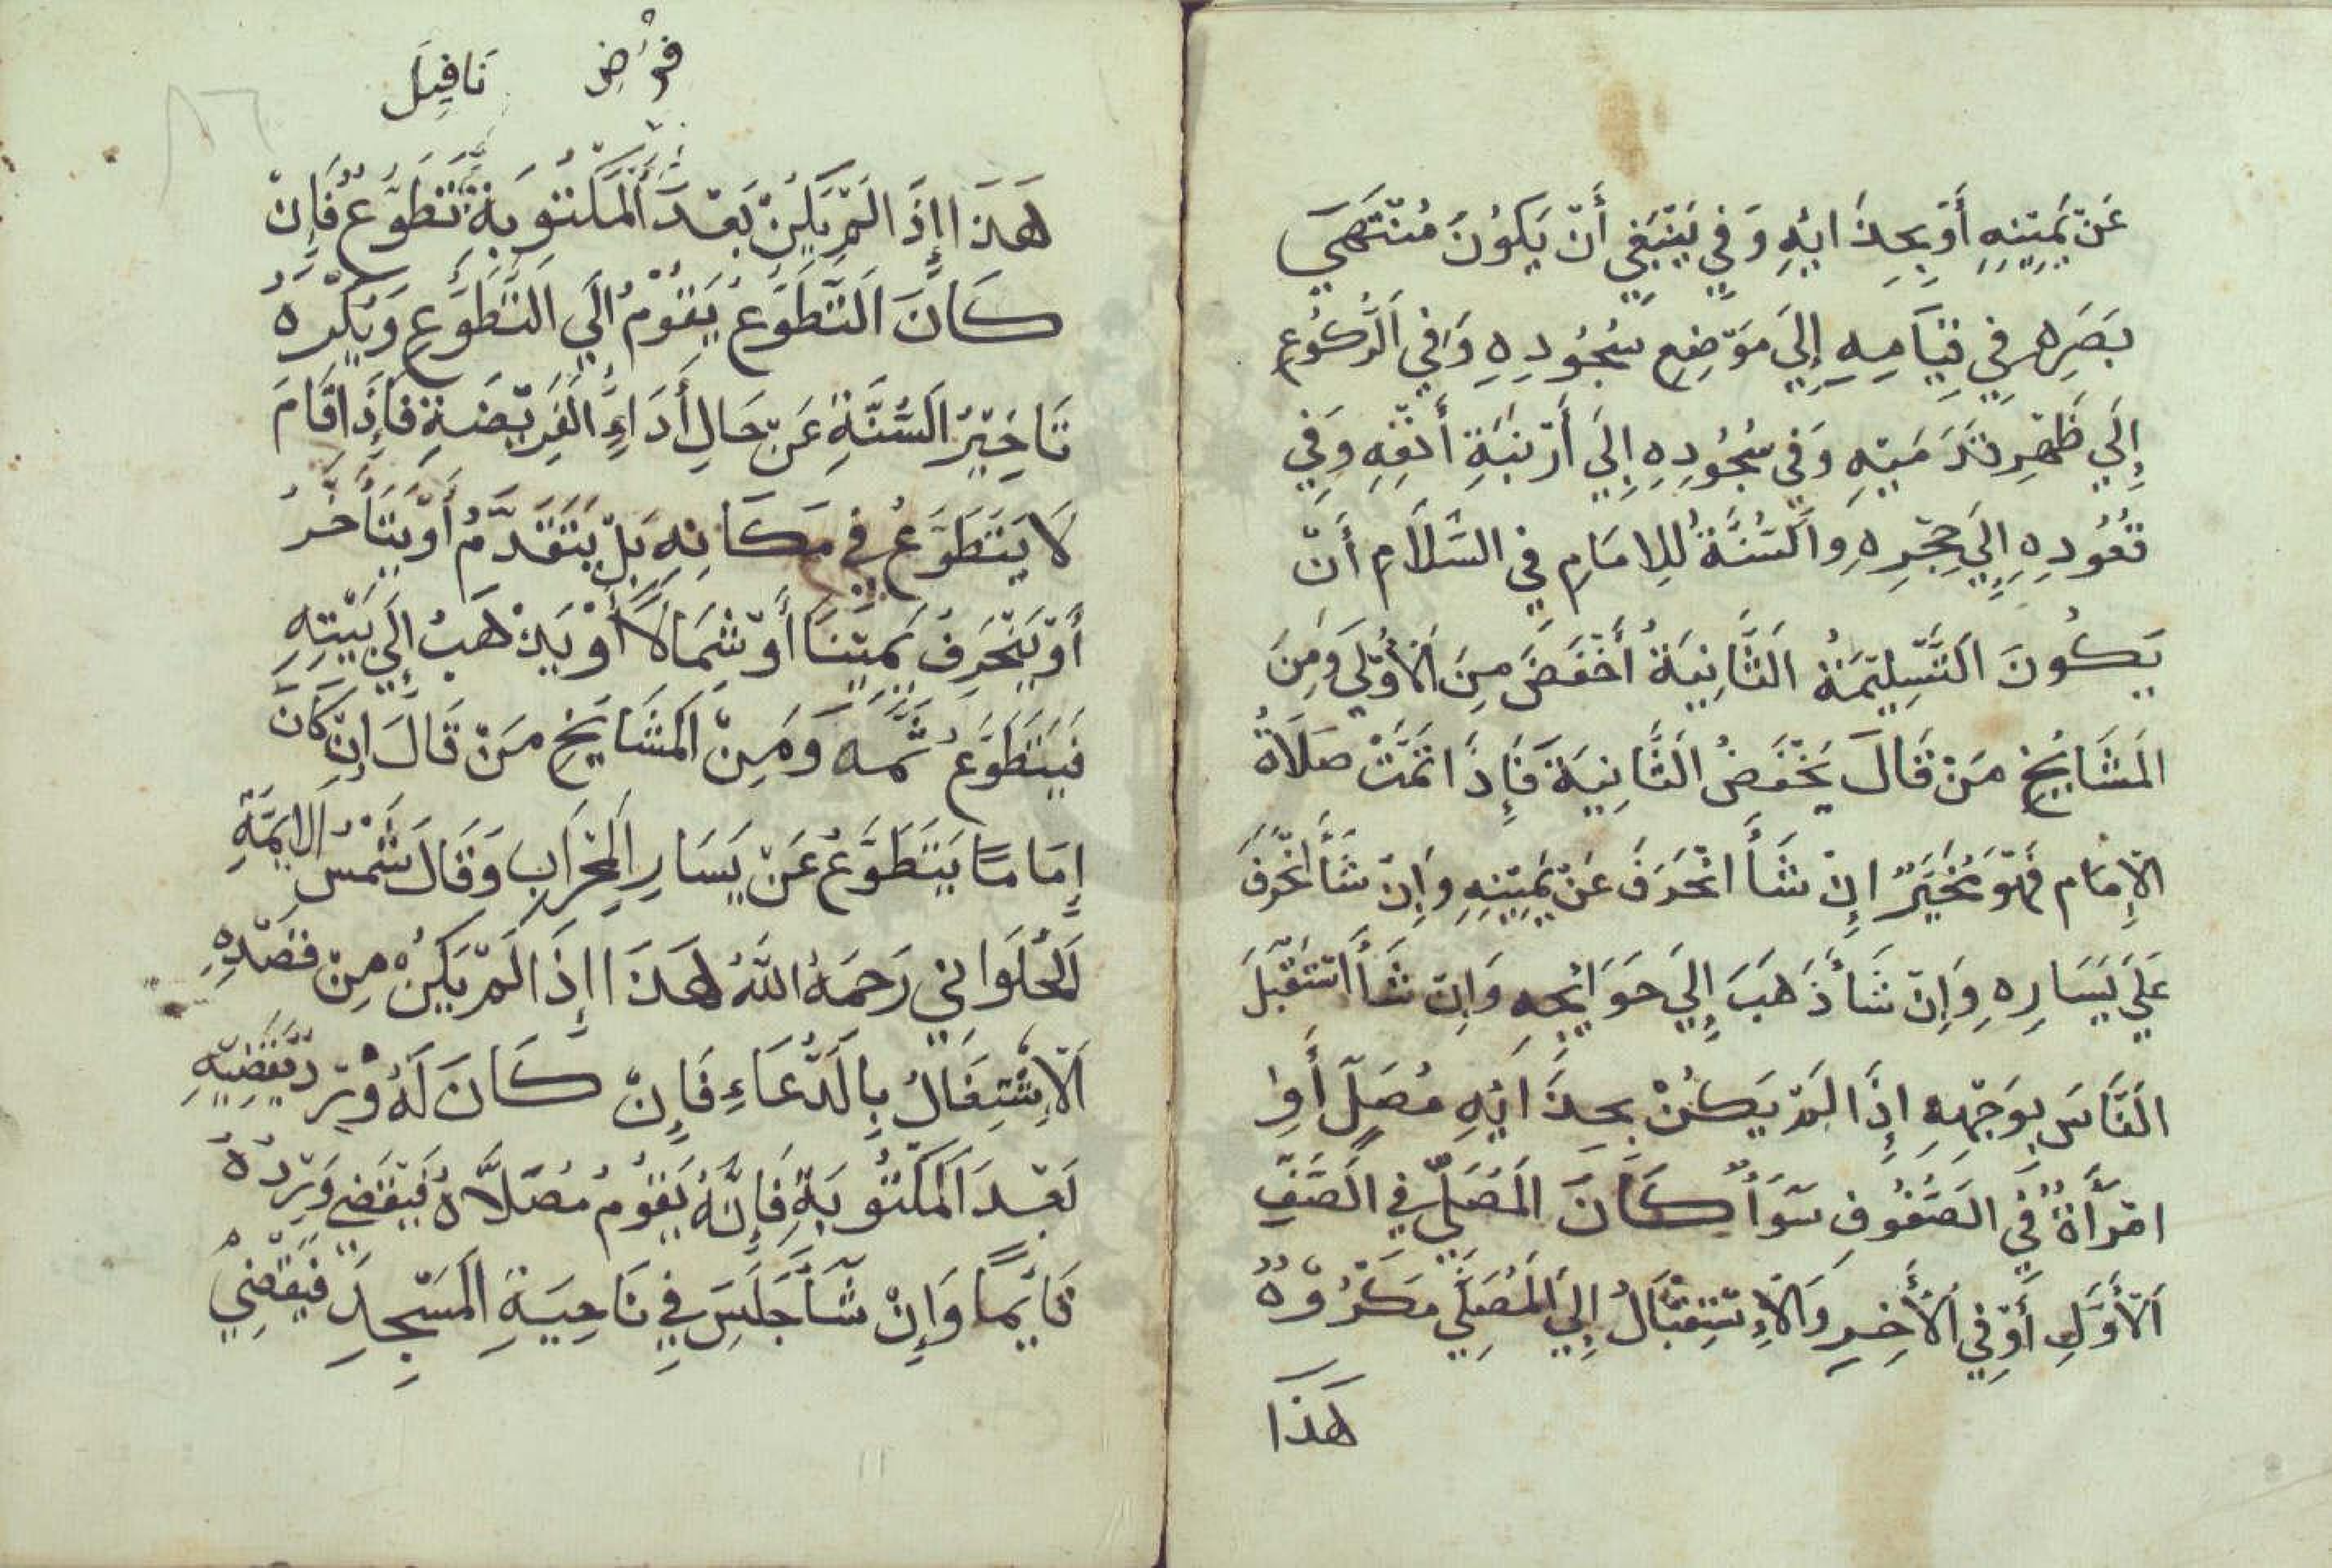 عَنْ يَمِيْنِهِ أَوْ بِحِذَائِهِ وَفِي يَنْبَغِي أَنْ يَكُوْنَ مُنْتَهَى
بَصَرِهِ فِي قِيَامِهِ إِلَى مَوْضِعِ سُجُوْدِهِ وَفِي الرُّكُوْعِ
إِلَى ظَهْرِ قَدَمَيْهِ وَفِي سُجُوْدِهِ إِلَى أَرْنَبَةِ أَنْفِهِ وَفِي
قُعُوْدِهِ إِلَى حِجْرِهِ وَالسُّنَّةُ لِلْاِمَامِ فِي السَّلَامِ أَنْ
يَكُوْنَ التَّسْلِيْمَةُ الثَّانِيَةُ أَخْفَضَ مِنَ الْأُوْلَى وَمِنَ
الْمَشَايِخِ مَنْ قَالَ يَخْفَضُ الثَّانِيَةَ فَإِذَا تَمَّتْ صَلَاةُ
الْإِمَام فَهُوَ مُخَيَّرٌ اِنْ شَأَ انْحَرَفَ عَنْ يَمِيْنِهِ وَاِنْ شَأَ انْحَرَفَ
عَلَى يَسَارِهِ وَاِنْ شَأَ ذَهَبَ إِلَى حَوَائِجِهِ وَاِنْ شَأَ اسْتَقْبَلَ
النَّاسَ بِوَجْهِهِ إِذَا لَمْ يَكُنْ بِحِذَائِهِ مُصَلٍّ أَوِ
امْرَأَةٌ فِي الصُّفُوْفِ سَوَأٌ كَانَ الْمُصَلِّي فِي الصَّفِّ
الْأَوَّلِ أَوْ فِي الْأَخِيرِ وَالْاِسْتِقْبَالُ إِلَى الْمُصَلِّي مَكْرُوْهٌ
هَذَا
فرض نَافِيل
هَذَا إِذَا لَمْ يَكُنْ بَعْدَ الْمَكْتُوْبَةِ تَطَوُّعٌ فَإِنْ
كَانَ التَّطَوُّعُ يَقُوْمُ اِلَى التَّطَوُّعِ وَيُكْرَهُ
تَاخِيْرُ السُّنَّةِ عَنْ حَالِ أَدَاءِ الْفَرِيْضَةِ فَاِذَا قَامَ
لَا يَتَطَوَّعُ فِي مَكَانِهِ بَلْ يَتَقَدَّمُ أَوْ يَتَأَخَّرُ
أَوْ يَنْحَرِفُ يَمِيْنًا أَوْ شِمَالًا أَوْ يَذْهَبُ إِلَى بَيْتِهِ
فَيَتَطَوَّعُ ثَمَّهَ وَمِنْ الْمَشَايِخِ مَنْ قَالَ اِنْ كَانَ
اِمَامًا يَتَطَوَّعُ عَنْ يَسَارِ الْمِحْرَابِ وَقَالَ شَمْسُ الْاَئِمَّةِ
الْحُلْوَانِي رَحِمَهُ اللّٰهُ هَذَا إِذَا لَمْ يَكُنْ مِنْ قَصْدِهِ
الْاِشْتِغَالُ بِالدُّعَاءِ فَإِنْ كَانَ لَهُ وِرْدٌ يَقْضِيْهِ
بَعْدَ الْمَكْتُوْبَةِ فَإِنَّهُ يَقُوْمُ مُصَلَّاهُ فَيَقْضِي وِرْدَهُ
قَائِمًا وَإِنْ شَأَ جَلَسَ فِي نَاحِيَةِ الْمَسْجِدِ فَيَقْضِي